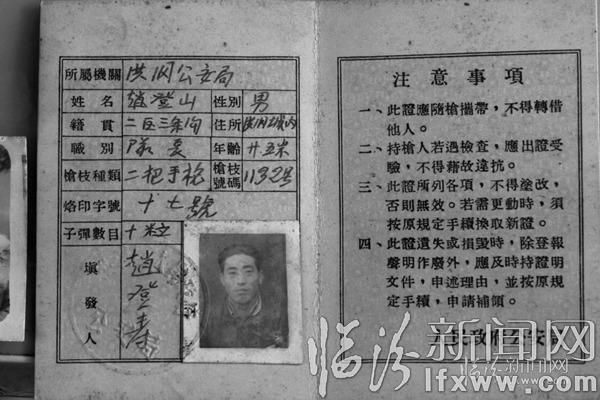 所屬機關 洪洞公安局
姓名 趙登山 性別 男
籍貫 二区三条沟 住所 洪洞城内
職別 隊長 年齡 廿五才
槍枝種類 二把手枪 槍枝號碼 1132号
烙印字號 十七號
子彈數目 十粒
填發人 趙登奉
注意事項
一、此證應隨槍攜帶，不得轉借
他人。
二、持槍人若遇檢查，應出證受
驗，不得藉故違抗。
三、此證所列各項，不得塗改，
否則無效。若需更動時，須
按原規定手續換取新證。
四、此證遺失或損毀時，除登報
聲明作廢外，應及時持證明
文件，申述理由，並按原規
定手續，申請補領。
临汾新闻网
临汾新闻网
lfxww.com